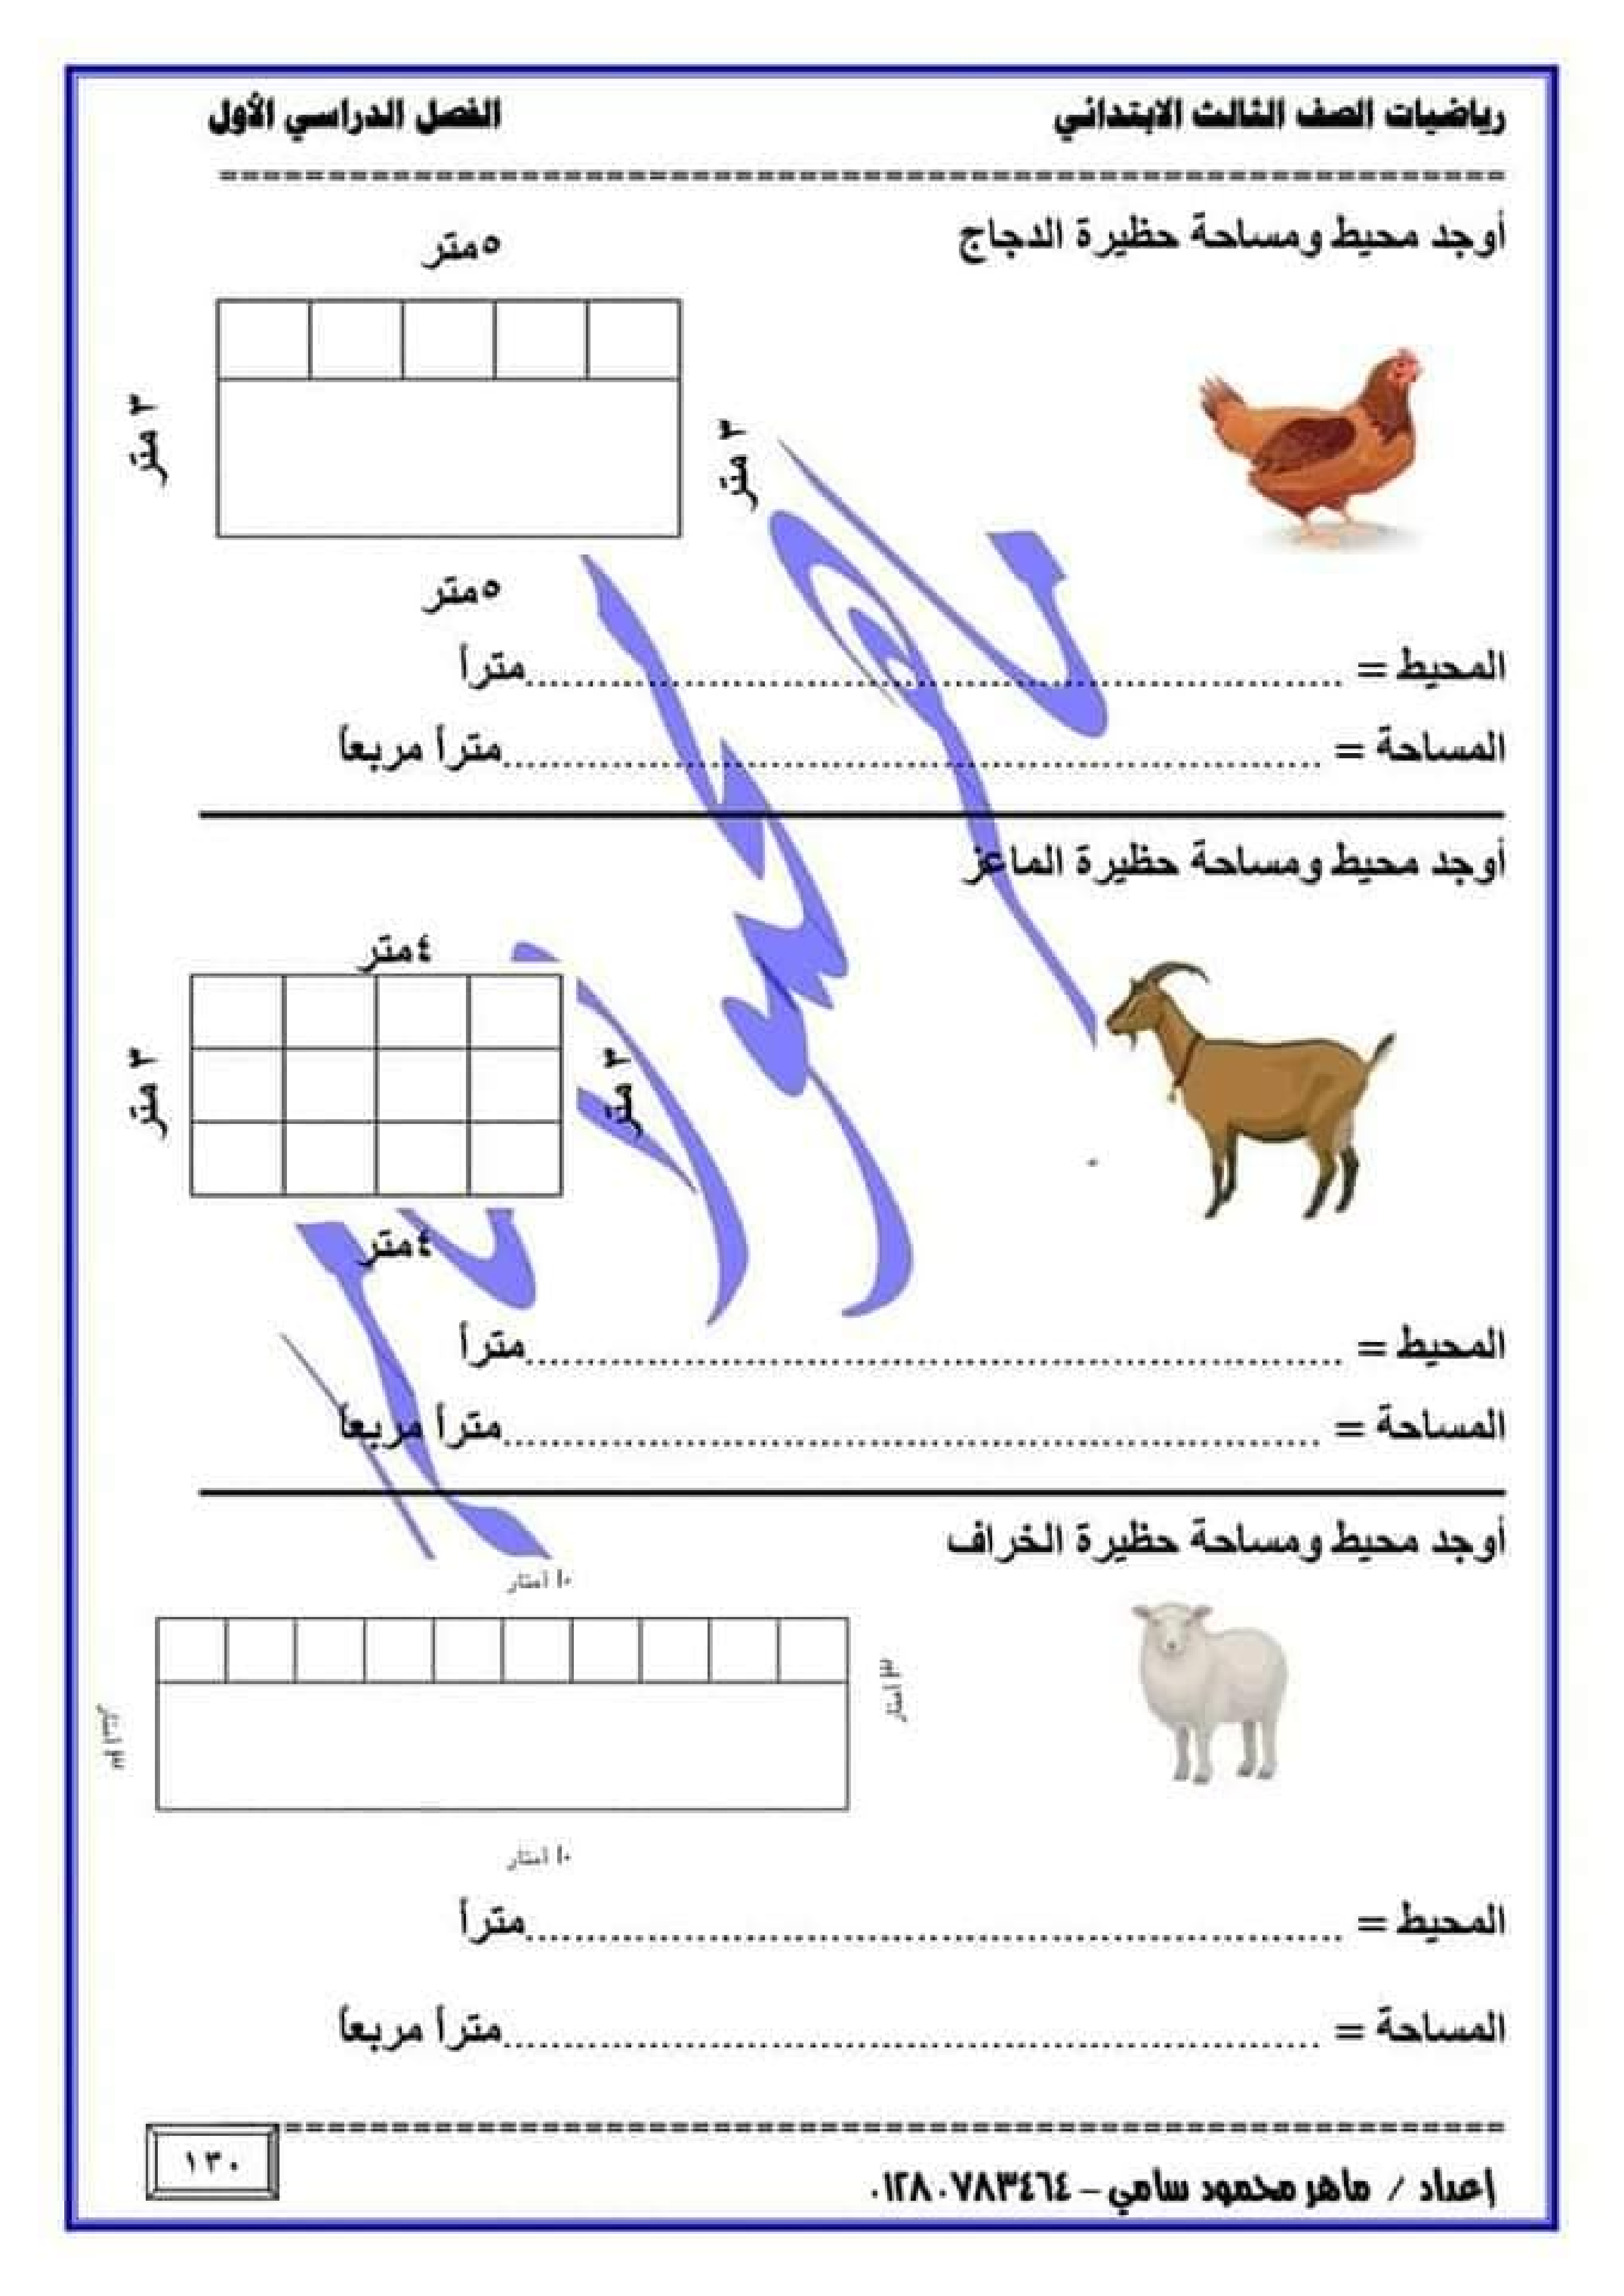 رياضيات الصف الثالث الابتدائي الفصل الدراسي الأول
أوجد محيط ومساحة حظيرة الدجاج
٥متر
٣ متر
٣ متر
٥متر
المحيط = ........................................ مترأ
المساحة = ........................................ مترأ مربعاً
أوجد محيط ومساحة حظيرة الماعز
٤متر
٣ متر
٣ متر
٤متر
المحيط = ........................................ مترأ
المساحة = ........................................ مترأ مربعاً
أوجد محيط ومساحة حظيرة الخراف
١٠ أمتار
٣ أمتار
٣ أمتار
١٠ أمتار
المحيط = ........................................ مترأ
المساحة = ........................................ مترأ مربعاً
١٣٠
إعداد / ماهر محمود سامي – ٠١٢٨٠٧٨٣٤٦٤